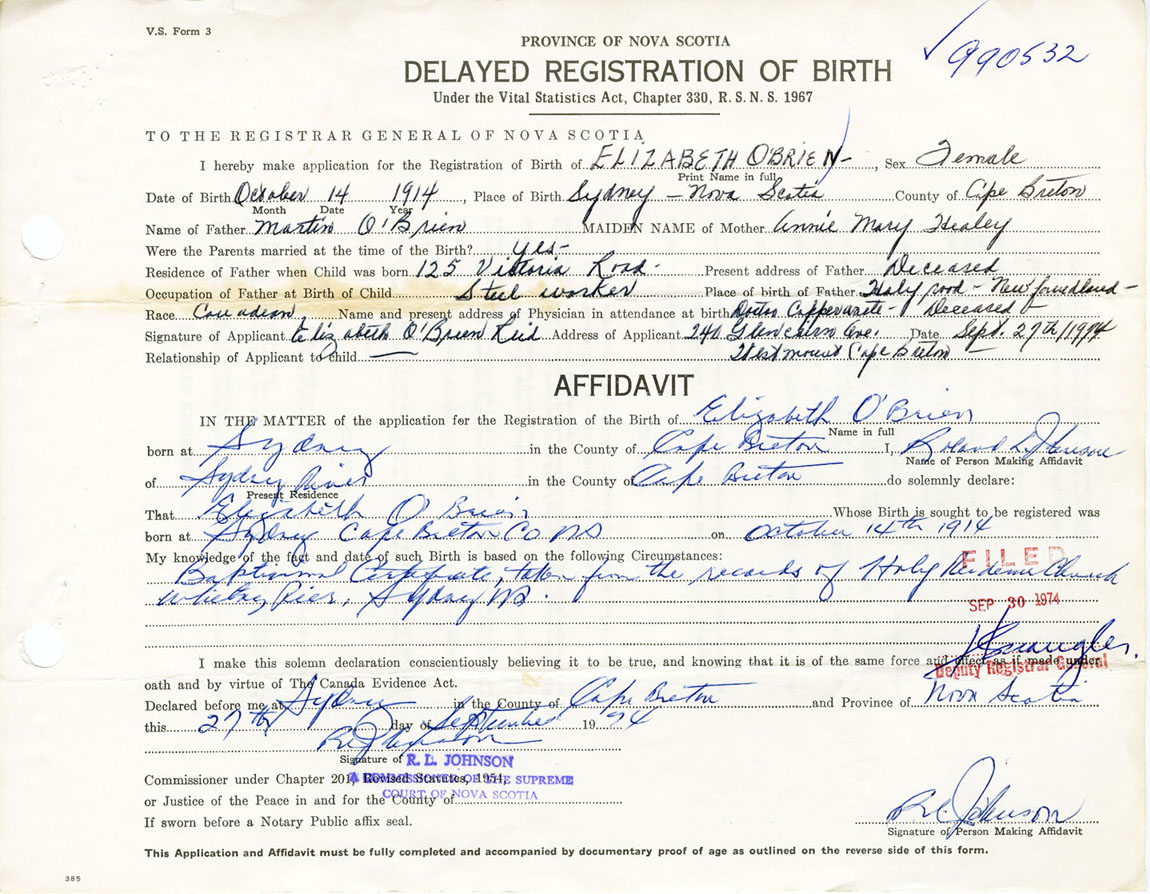 V.S. Form 3
990532
PROVINCE OF NOVA SCOTIA
DELAYED REGISTRATION OF BIRTH
Under the Vital Statistics Act, Chapter 330, R. S. N. S. 1967
TO THE REGISTRAR GENERAL OF NOVA SCOTIA
I hereby make application for the Registration of Birth of ELIZABETH O'BRIEN-, Sex Female
Print Name in full
Date of Birth October 14 1914, Place of Birth Sydney - Nova Scotia County of Cape Breton
Month Date Year
Name of Father Martin O'Brien MAIDEN NAME of Mother Annie Mary Healey
Were the Parents married at the time of the Birth? yes-
Residence of Father when Child was born 125 Victoria Road- Present address of Father Deceased
Occupation of Father at Birth of Child Steel worker Place of birth of Father Holy rood - New foundland -
Race Canadian Name and present address of Physician in attendance at birth Doctor - Deceased
Signature of Applicant Elizabeth O'Brien Reid Address of Applicant 241 Glencairn Ave. Date Sept. 27th/1974
Relationship of Applicant to child — Westmount Cape Breton -
AFFIDAVIT
IN THE MATTER of the application for the Registration of the Birth of Elizabeth O'Brien
Name in full
born at Sydney in the County of Cape Breton I, Roland L. Johnson
Name of Person Making Affidavit
of Sydney River in the County of Cape Breton do solemnly declare:
Present Residence
That Elizabeth O'Brien Whose Birth is sought to be registered was
born at Sydney Cape Breton Co NS on October 14th 1914
My knowledge of the fact and date of such Birth is based on the following Circumstances:
FILED
Baptismal Certificate, taken from the records of Holy Redeemer Church
Whitney Pier, Sydney NS.
SEP 30 1974
I make this solemn declaration conscientiously believing it to be true, and knowing that it is of the same force and effect as if made under
Deputy Registrar General
oath and by virtue of The Canada Evidence Act.
Declared before me at Sydney in the County of Cape Breton and Province of Nova Scotia
this 27th day of September 1974
R L Johnson
Signature of R. L. JOHNSON
Commissioner under Chapter 201, Revised Statutes, 1954,
A COMMISSIONER OF THE SUPREME
COURT OF NOVA SCOTIA
or Justice of the Peace in and for the County of
If sworn before a Notary Public affix seal.
R L Johnson
Signature of Person Making Affidavit
This Application and Affidavit must be fully completed and accompanied by documentary proof of age as outlined on the reverse side of this form.
385